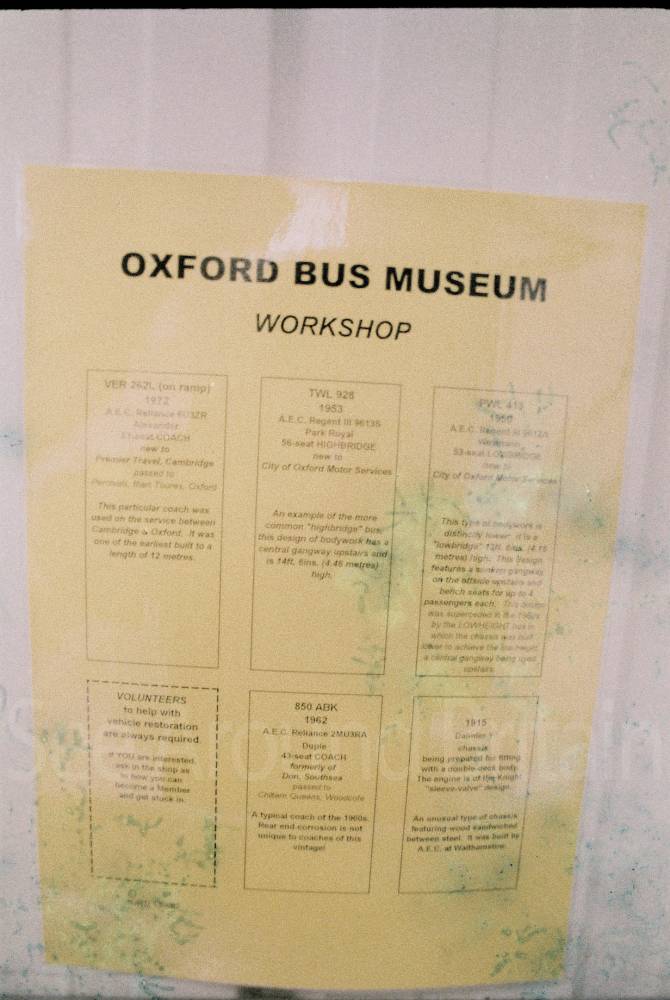 OXFORD BUS MUSEUM
WORKSHOP
VER 262L (on ramp)
1972
A.E.C. Reliance 6U3ZR
Alexander
51-seat COACH
new to
Premier Travel, Cambridge
passed to
Percivals, then Toures, Oxford
This particular coach was
used on the service between
Cambridge & Oxford. It was
one of the earliest built to a
length of 12 metres.
TWL 928
1953
A.E.C. Regent III 9613S
Park Royal
56-seat HIGHBRIDGE
new to
City of Oxford Motor Services
An example of the more
common "highbridge" bus,
this design of bodywork has a
central gangway upstairs and
is 14ft. 6ins. (4.46 metres)
high.
PWL 413
1950
A.E.C. Regent III 9612A
Weymann
53-seat LOWBRIDGE
new to
City of Oxford Motor Services
This type of bodywork is
distinctly lower: it is a
"lowbridge" 13ft. 6ins. (4.15
metres) high. This design
features a sunken gangway
on the offside upstairs and
bench seats for up to 4
passengers each. This design
was superceded in the 1960s
by the LOWHEIGHT bus in
which the chassis was built
lower to achieve the low height
a central gangway being used
upstairs.
VOLUNTEERS
to help with
vehicle restoration
are always required.
If YOU are interested,
ask in the shop as
to how you can
become a Member
and get stuck in.
850 ABK
1962
A.E.C. Reliance 2MU3RA
Duple
43-seat COACH
formerly of
Don, Southsea
passed to
Chiltern Queens, Woodcote
A typical coach of the 1960s.
Rear end corrosion is not
unique to coaches of this
vintage!
1915
Daimler Y
chassis
being prepared for fitting
with a double-deck body.
The engine is of the Knight
"sleeve-valve" design.
An unusual type of chassis
featuring wood sandwiched
between steel. It was built by
A.E.C. at Walthamstow.